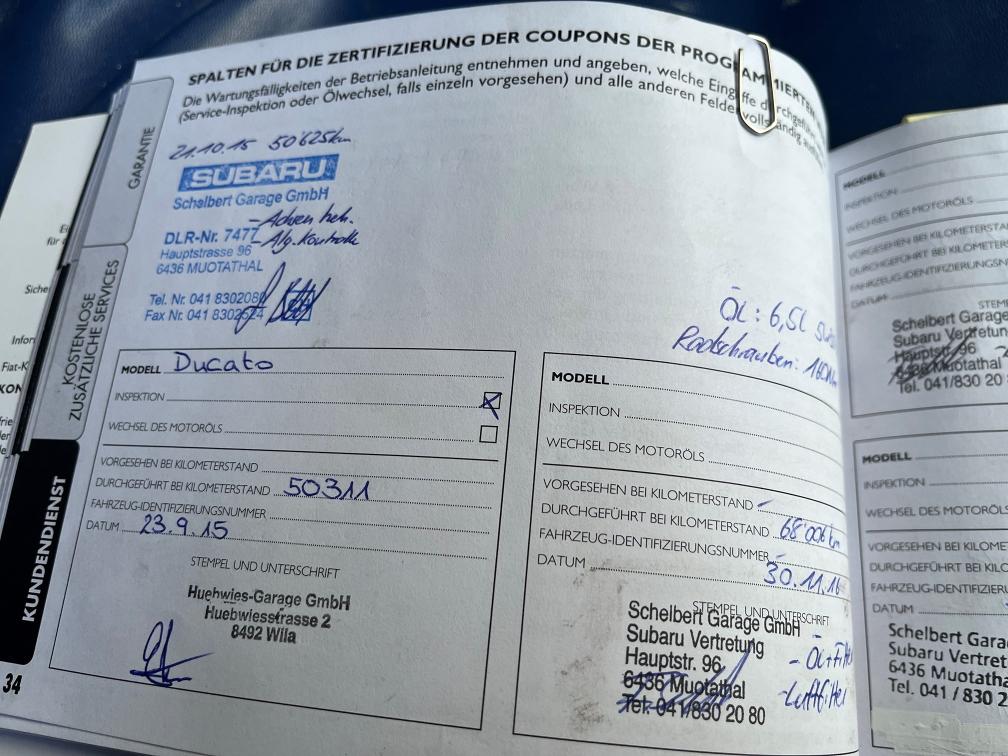 SPALTEN FÜR DIE ZERTIFIZIERUNG DER COUPONS DER PROGRAMMIERTEN
Die Wartungsfälligkeiten der Betriebsanleitung entnehmen und angeben, welche Eingriffe durchgeführt
(Service-Inspektion oder Ölwechsel, falls einzeln vorgesehen) und alle anderen Felder vollständig
GARANTIE
21.10.15 50'625km
SUBARU
Schelbert Garage GmbH
DLR-Nr. 7477
- Alg. Kontrolle
Hauptstrasse 96
6436 MUOTATHAL
Tel. Nr. 041 8302080
Fax Nr. 041 8302624
KOSTENLOSE
ZUSÄTZLICHE SERVICES
KUNDENDIENST
34
ÖL: 6,5L
Radschrauben: 160
MODELL Ducato
INSPEKTION
WECHSEL DES MOTORÖLS
VORGESEHEN BEI KILOMETERSTAND
DURCHGEFÜHRT BEI KILOMETERSTAND 50311
FAHRZEUG-IDENTIFIZIERUNGSNUMMER
DATUM 23.9.15
STEMPEL UND UNTERSCHRIFT
Huebwies-Garage GmbH
Huebwiesstrasse 2
8492 Wila
MODELL
INSPEKTION
WECHSEL DES MOTORÖLS
VORGESEHEN BEI KILOMETERSTAND -
DURCHGEFÜHRT BEI KILOMETERSTAND 68'006 km
FAHRZEUG-IDENTIFIZIERUNGSNUMMER -
DATUM 30.11.16
STEMPEL UND UNTERSCHRIFT
Schelbert Garage GmbH
Subaru Vertretung
Hauptstr. 96
6436 Muotathal
Tel. 041/830 20 80
- Öl+Filter
- Luftfilter
MODELL
INSPEKTION
WECHSEL DES MOTORÖLS
VORGESEHEN BEI KILOMETERSTA
DURCHGEFÜHRT BEI KILOMETERS
FAHRZEUG-IDENTIFIZIERUNGSN
DATUM
STEM
Schelbert Garage
Subaru Vertretun
Hauptstr. 96
6436 Muotathal
Tel. 041/830 20
MODELL
INSPEKTION
WECHSEL DES MOTORÖLS
VORGESEHEN BEI KILOME
DURCHGEFÜHRT BEI KILO
FAHRZEUG-IDENTIFIZIERU
DATUM
Schelbert Gara
Subaru Vertret
6436 Muotatha
Tel. 041 / 830 2